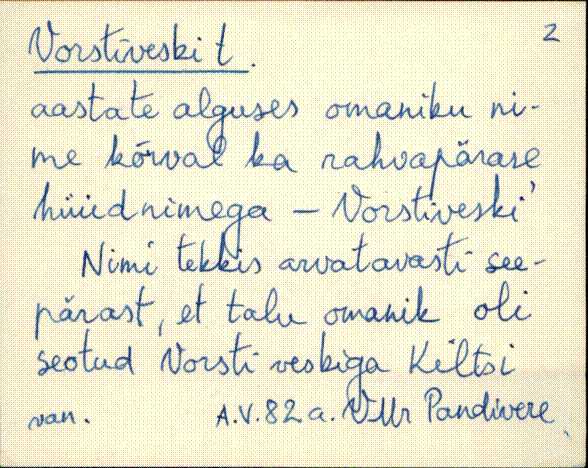 Vorstiveski t. 2
aastate alguses omaniku ni-
me kõrval ka rahvapärase
hüüdnimega – Vorstiveski'
Nimi tekkis arvatavasti see-
pärast, et talu omanik oli
seotud Vorsti veskiga Kiltsi
van. A.V. 82 a. VMr Pandivere